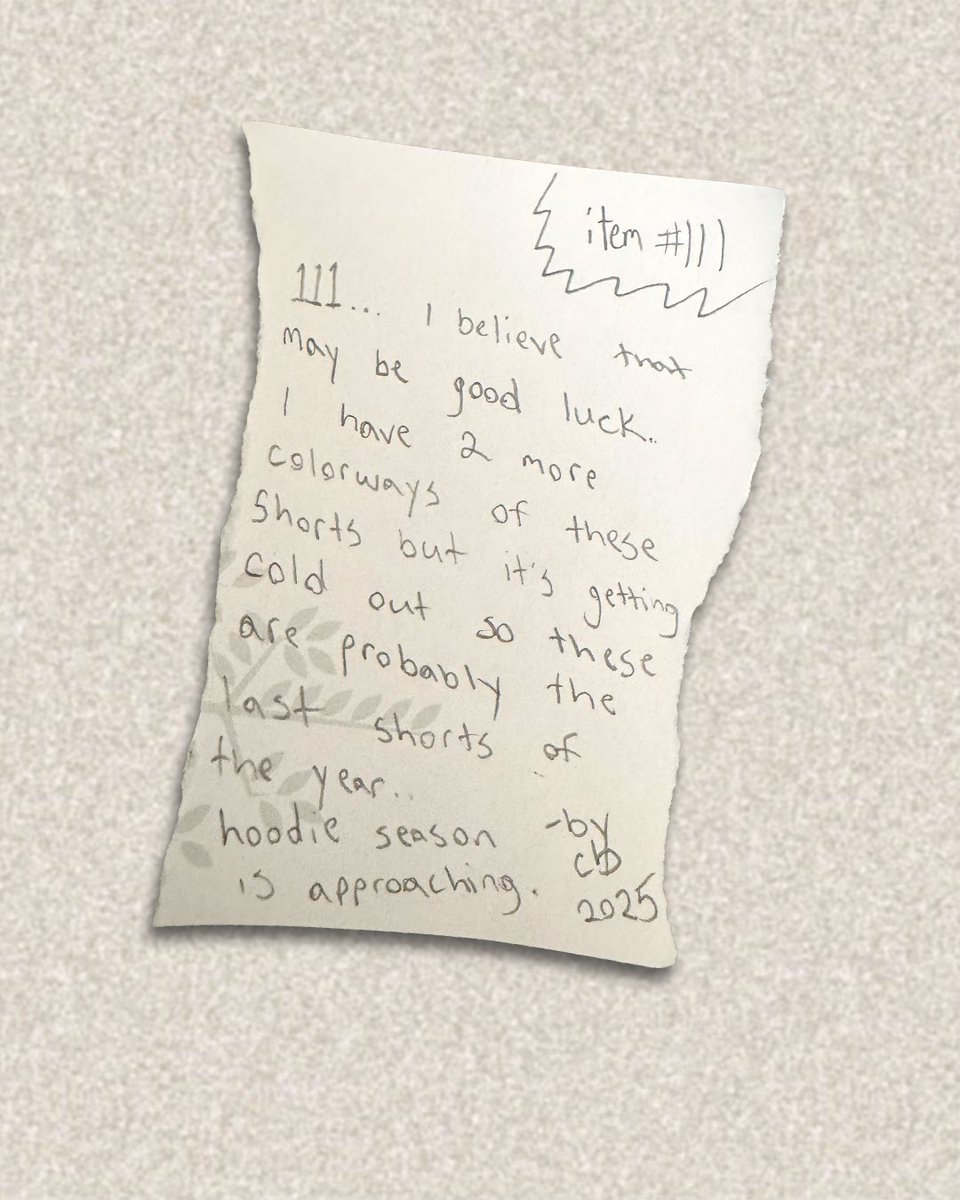 item #111
111... I believe that
may be good luck..
I have 2 more
colorways of these
shorts but it's getting
cold out so these
are probably the
last shorts of
the year..
hoodie season
is approaching.
-by
cb
2025